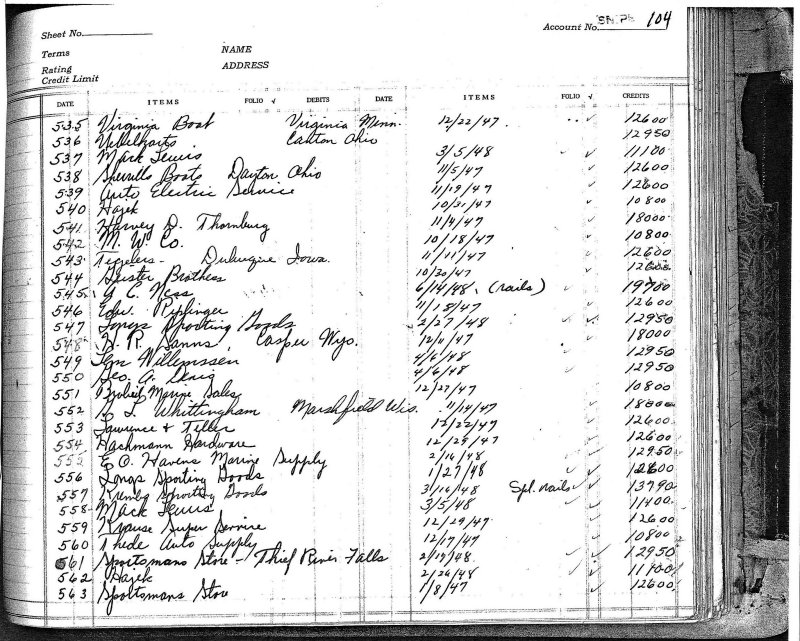 Sheet No.
Account No. SNIPE 104
Terms NAME
Rating ADDRESS
Credit Limit
DATE ITEMS FOLIO √ DEBITS DATE ITEMS FOLIO √ CREDITS
535 Virginia Boat Virginia Minn. 12/22/47 12600
536 Canton Ohio 12950
537 Mack Lewis 3/5/48 11100
538 Boats Dayton Ohio 11/5/47 12600
539 Auto Electric Service 11/19/47 12600
540 Hajek 10/31/47 10800
541 Harvey D. Thornburg 11/4/47 18000
542 M. W. Co. 10/18/47 10800
543 Tegelers - Dubuque Iowa 11/11/47 12600
544 Brothers 10/20/47 12600
545 C. Ness 6/14/48 (rails) 19700
546 Edw. 11/18/47 12600
547 Longs Sporting Goods 2/27/48 12950
548 H. R. Casper Wyo. 12/11/47 18000
549 Willemssen 4/6/48 12950
550 Geo. A. 4/6/48 12950
551 Marine Sales 12/27/47 10800
552 L. Whittingham Marshfield Wis. 11/14/47 18000
553 Lawrence & Teller 12/22/47 12600
554 Hachmann Hardware 12/29/47 12600
555 E. O. Havens Marine Supply 2/16/48 12950
556 Longs Sporting Goods 1/27/48 12600
557 Sporting Goods 3/16/48 Spl. rails 13790
558 Mack Lewis 3/5/48 11400
559 Krause Super Service 12/29/47 12600
560 Thede Auto Supply 12/17/47 10800
561 Sportsmans Store - Thief River Falls 2/19/48 12950
562 Hajek 2/26/48 11100
563 Sportsmans Store 1/8/47 12600